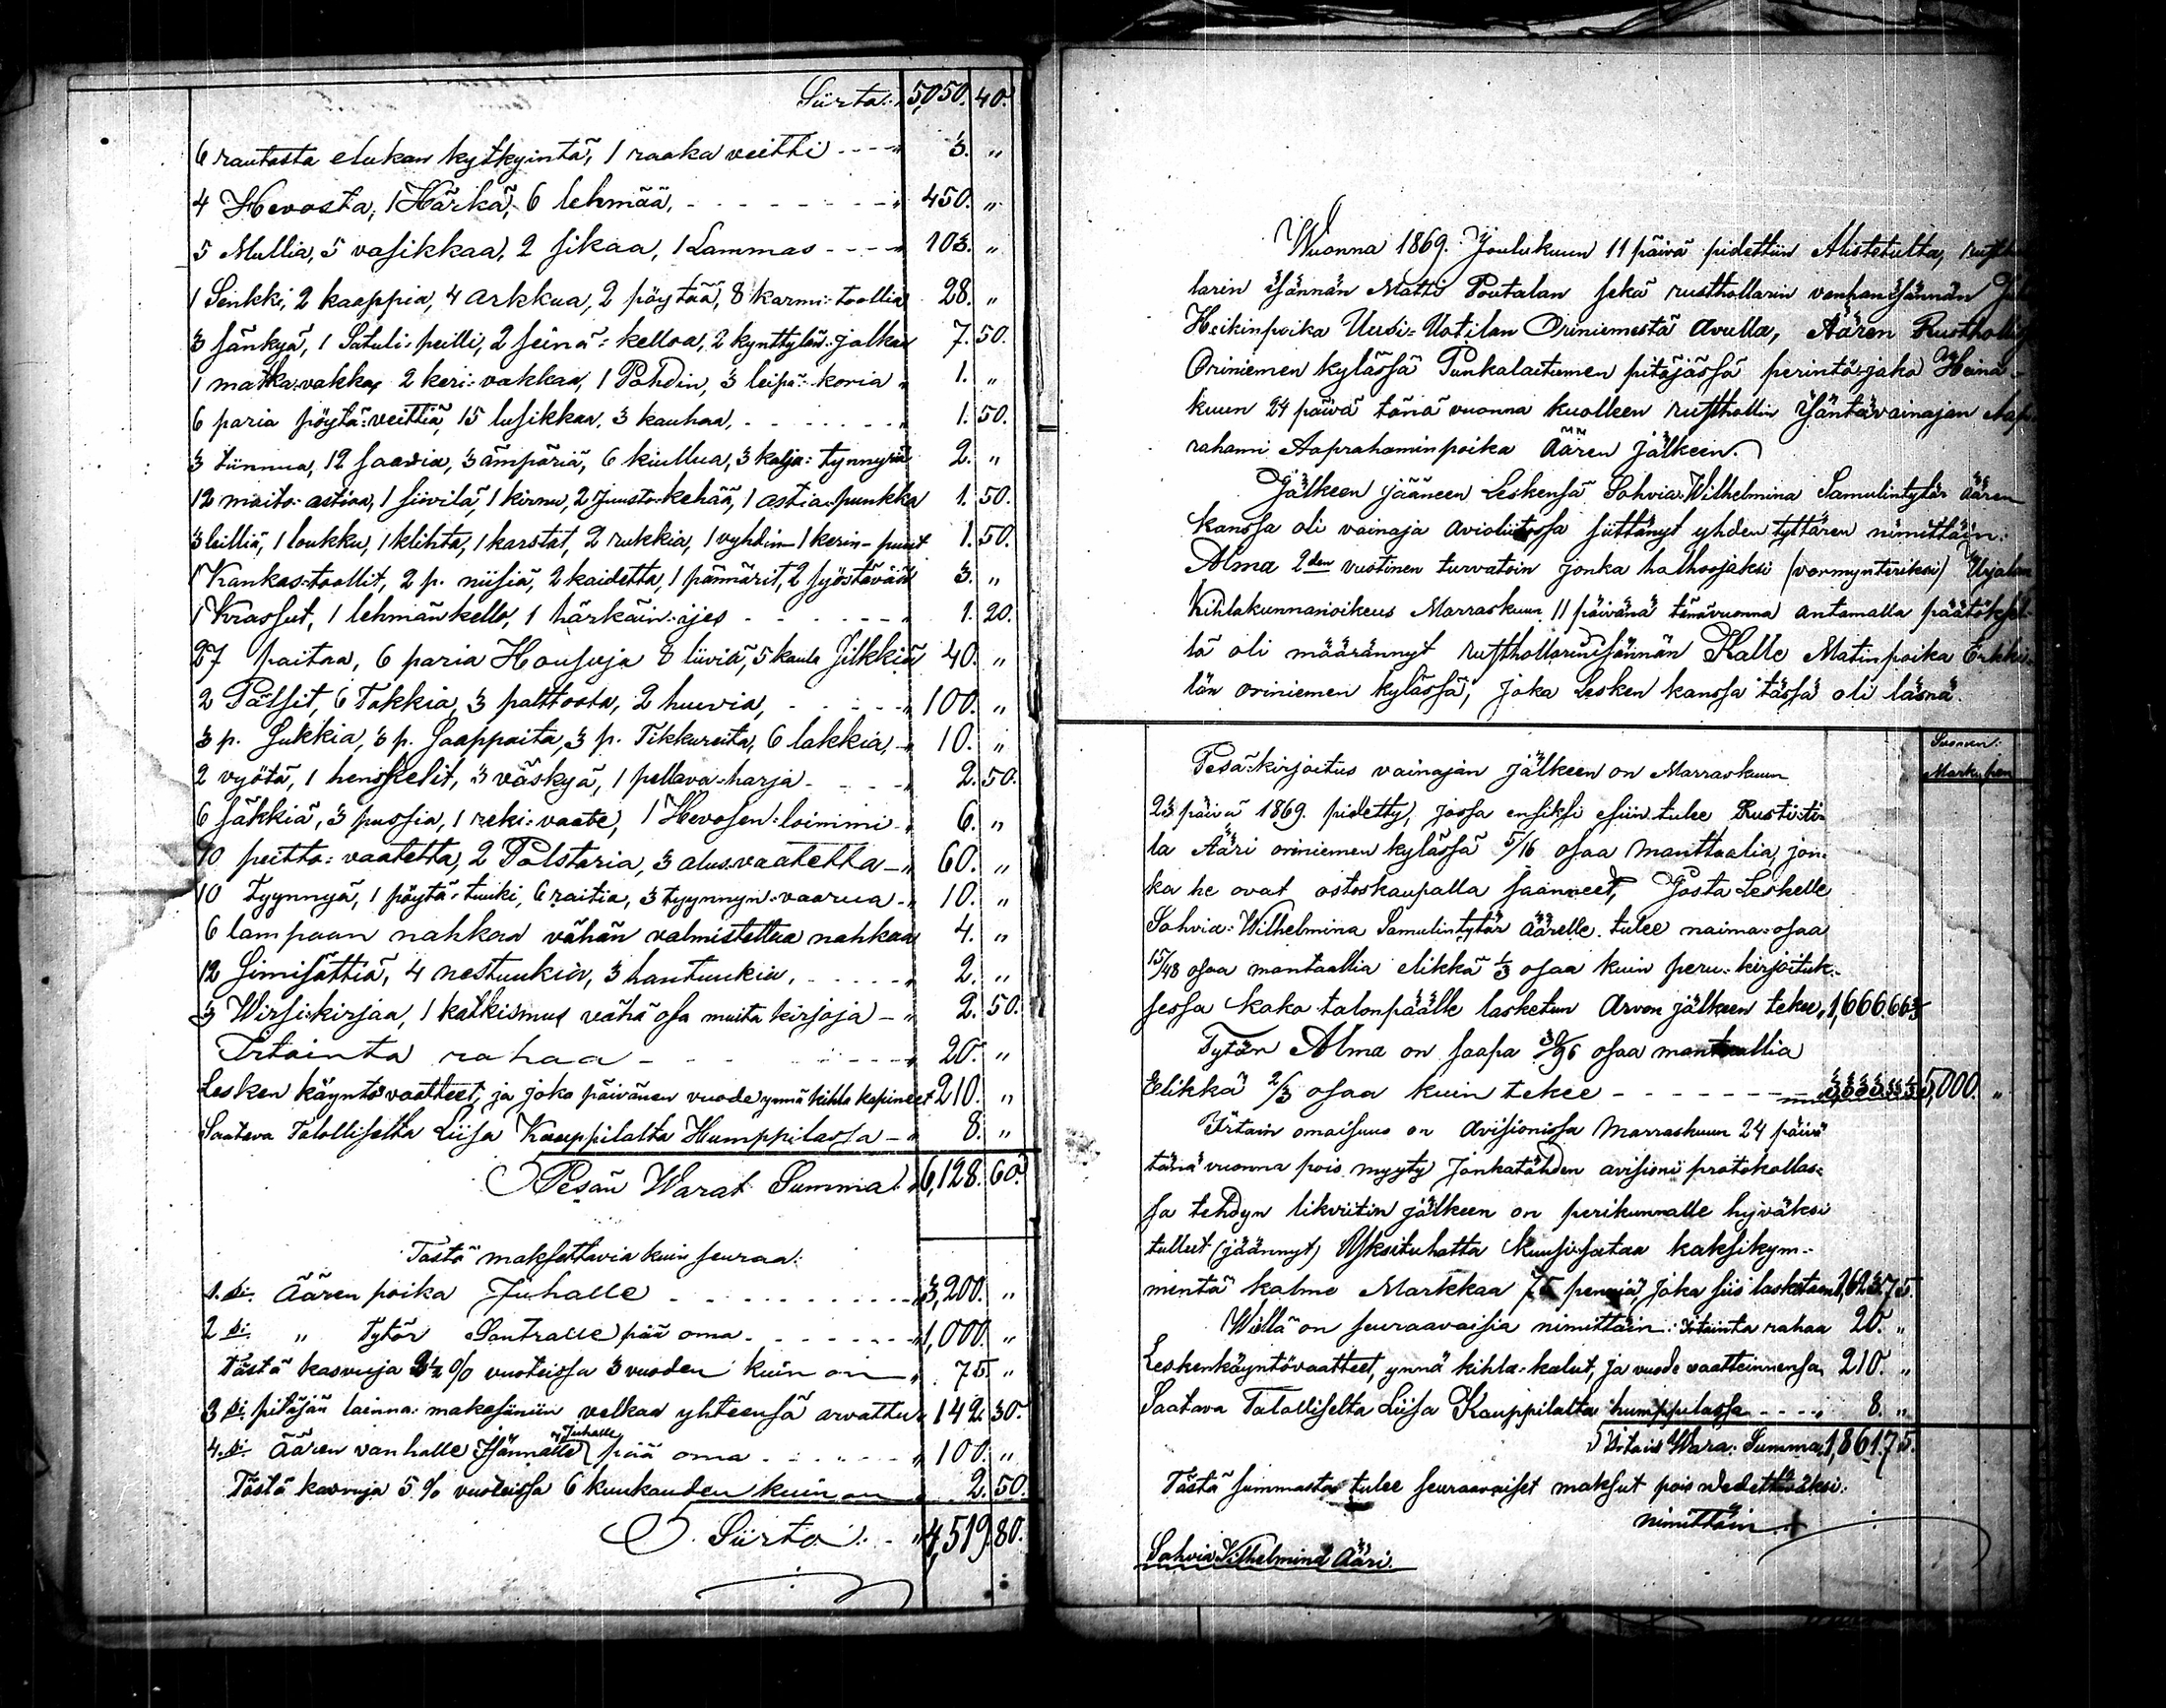 Siirto: 5,050. 40.
6 rautasta elukan kytkyintä, 1 raaka veitti - - - „ 3. „
4 Hevosta, 1 Härkä, 6 lehmää, - - - - - - - „ 450. „
5 Mullia, 5 vasikkaa, 2 sikaa, 1 Lammas - - - - „ 103. „
1 Senkki, 2 kaappia, 4 arkkua, 2 pöytää, 8 karmi-toollia 28. „
3 sänkyä, 1 Satuli-peilli, 2 seinä-kelloa, 2 kynttylän-jalkaa 7. 50.
1 matka-vakka, 2 keri-vakkaa, 1 Pohdin, 3 leipä-koria „ 1. „
6 paria pöytä-veittiä, 15 lusikkaa, 3 kauhaa, - - - - - „ 1. 50.
3 tiinnua, 12 saavia, 3 ämpäriä, 6 kiullua, 3 kalja-tynnyriä 2. „
12 maito-astiaa, 1 siivilä, 1 kirnu, 2 juusto-kehää, 1 astia-punkka 1. 50.
3 leilliä, 1 loukku, 1 klihta, 1 karstat, 2 rukkia, 1 vyhdin- 1 kerin-puut 1. 50.
1 Kankas-toollit, 2 p. niisiä, 2 kaidetta, 1 pännärit, 2 syöstävää 3. „
1 Krassut, 1 lehmänkello, 1 härkäin-ijes - - - - - „ 1. 20.
27 paitaa, 6 paria Housuja 8 liiviä, 5 kaula Silkkiä 40. „
2 Pälsit, 6 Takkia, 3 palttoota, 2 huivia, - - - - „ 100. „
3 p. Sukkia, 3 p. Saappaita, 3 p. Tikkureita, 6 lakkia, - „ 10. „
2 vyötä, 1 henskelit, 3 väskyä, 1 pellava-harja - - - - „ 2. 50.
6 säkkiä, 3 pussia, 1 reki-vaate, 1 Hevosen-loimmi - „ 6. „
10 peitto-vaatetta, 2 Polstaria, 3 alus-vaatetta - „ 60. „
10 tyynnyä, 1 pöytä-tuuki, 6 raitia, 3 tyynnyn-vaarua - „ 10. „
6 lampaan nahkaa vähän valmistettua nahkaa 4. „
12 Simisättiä, 4 nestuukia, 3 hantuukia, - - - - - „ 2. „
3 Wirsi-kirjaa, 1 katkismus vähä osa muita kirjoja - „ 2. 50.
Irtainta rahaa - - - - - - „ 20. „
Lesken käyntövaatteet, ja joka päivänen vuode ynnä kihla kapineet 210. „
Saatava Talolliselta Liisa Kauppilalta Humppilassa - „ 8. „
Pesän Warat Summa „ 6,128. 60.
Tästä maksettavia kuin seuraa:
1. si. Äären poika Juhalle - - - - - - - - - „ 3,200. „
2 si. „ Tytär Santralle pää oma - - - - - - „ 1,000. „
Tästä kasvuja 2½ % vuoteissa 3 vuoden kuin on „ 75. „
3 si. pitäjän lainna-makasiiniin velkaa yhteensä arvattu „ 142. 30.
4. si. Äären vanhalle Isännälle Juhalle pää oma - - - - „ 100. „
Tästä kasvuja 5 % vuoteissa 6 kuukauden kuin on „ 2. 50.
Siirto: - „ 4,519. 80.
Wuonna 1869. Joulukuun 11 päivä pidettiin Alistetulta,
larin Isännän Matti Poutalan sekä rusthollarin vanhan Isännän
Heikinpoika Uusi-Uotilan Oriniemestä avulla, Äären
Oriniemen kylässä Punkalaitumen pitäjässä perintö-jako Heinä-
kuun 24 päivä tänä vuonna kuolleen rusthollin Isäntävainajan
rahami Aaprahaminpoika Äären jälkeen.
Jälkeen jääneen Leskensä Sohvia Wilhelmina Samulintytär Äären
kanssa oli vainaja avioliitossa siittänyt yhden tyttären nimittäin:
Alma 2den vuotinen turvatoin jonka halhoojaksi (vormynteriksi) Urjalan
Kihlakunnanoikeus Marraskuun 11 päivänä tänävuonna antamalla
lä oli määrännyt rusthollarin Isännän Kalle Matinpoika Erkki-
län oriniemen kylässä, joka Lesken kanssa tässä oli läsnä.
Suomen:
Marku pen
Pesä-kirjoitus vainajan jälkeen on Marraskuun
23 päivä 1869. pidetty, jossa ensiksi esiin tulee Rusti-ti-
la Ääri oriniemen kylässä 5/16 osaa manttaalia, jon-
ka he ovat ostoskaupalla saanneet, Josta Leskelle
Sohvia-Wilhelmina Samulintytär Äärelle tulee naima-osaa
15/48 osaa mantaallia elikkä 1/3 osaa kuin peru-kirjoituk-
sessa koko talonpäälle lasketun arvon jälkeen tekee, 1,666,66⅔
Tytön Alma on saapa 30/96 osaa mantaallia
Elikkä 2/3 osaa kuin tekee - - - - - - - 3333 33⅓ 5,000. „
Irtain omaisuus on avisionissa Marraskuun 24 päivä
tänä vuonna pois myyty jonkatähden avisioni protokollas-
sa tehdyn likviitin jälkeen on perikunnalle hyväksi
tulleet (jäännyt) Yksituhatta kuusisataa kaksikym-
mentä kolme Markkaa 75 penniä, joka siis lasketaan 1,623,75.
Wiellä on seuraavaisia nimittäin: irtainta rahaa 20. „
Leskenkäyntövaatteet, ynnä kihla-kalut, ja vuode vaatteinnensa, 210. „
Saatava Talolliselta Liisa Kauppilalta humppilassa - - - - „ 8. „
Irtain Wara: Summa, 1,861,75.
Tästä summasta tulee seuraavaiset maksut pois wedettäväksi:
nimittäin:
Sohvia Vilhelmina Ääri.